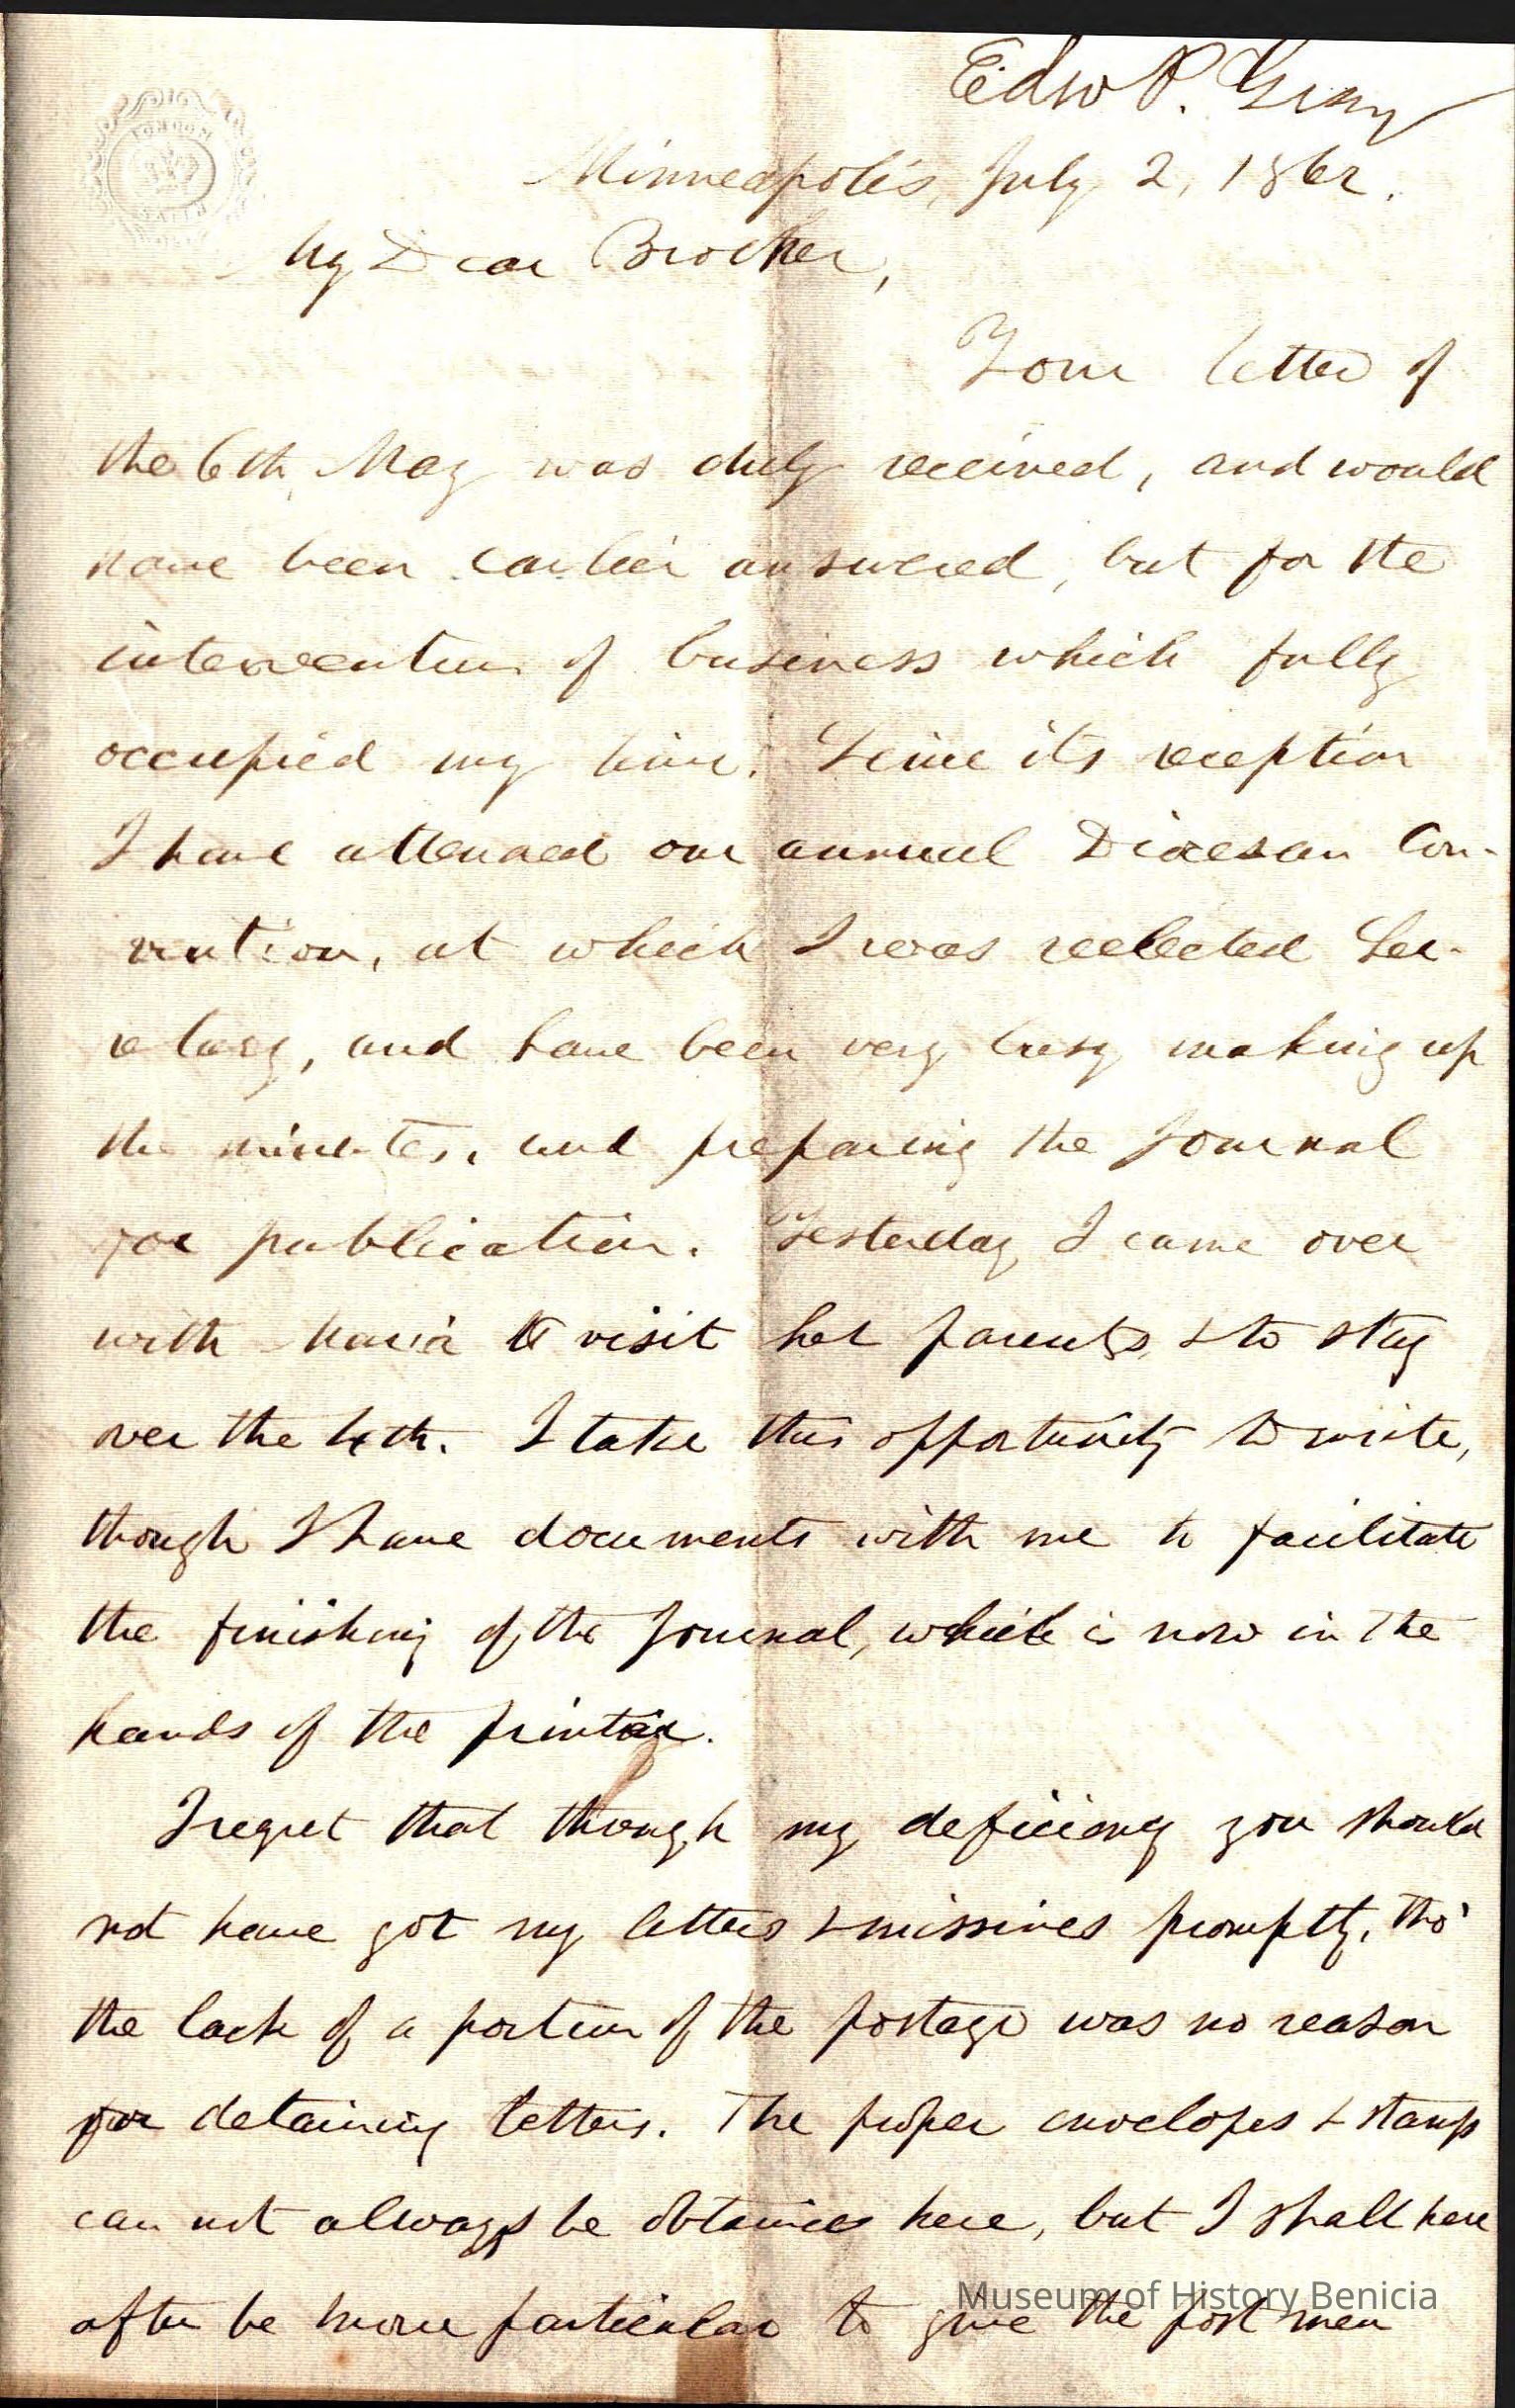 Edw P. Gray
Minneapolis, July 2, 1862.
My Dear Brother,
Your letter of
the 6th May was duly received, and would
have been earlier answered, but for the
intervention of business which fully
occupied my time. Since its reception
I have attended our annual Diocesan Con-
vention, at which I was reelected Sec-
retary, and have been very busy making up
the minutes, and preparing the Journal
for publication. Yesterday I came over
with Maria to visit her parents, & to stay
over the 4th. I take this opportunity to write,
though I have documents with me to facilitate
the finishing of the Journal, which is now in the
hands of the printer.
I regret that through my deficiency you should
not have got my letters & missives promptly, tho'
the lack of a portion of the postage was no reason
for detaining letters. The proper envelopes & stamps
can not always be obtained here, but I shall here
after be more particular to give the post men
Museum of History Benicia